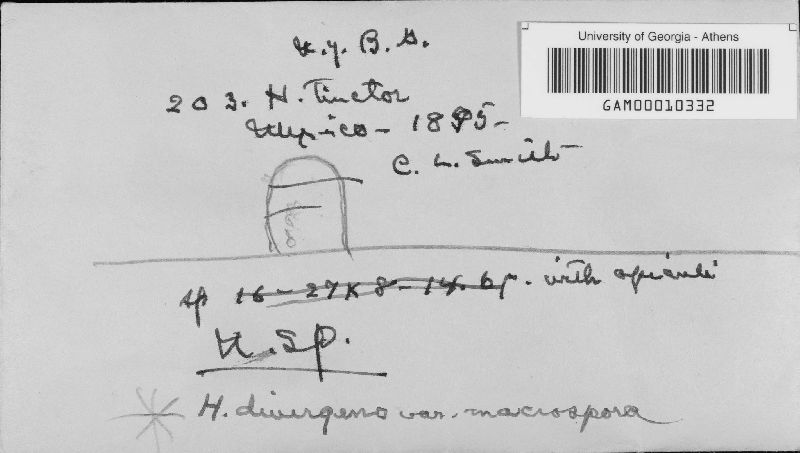 University of Georgia - Athens
GAM00010332
N.Y. B. G.
203. H. Tinctor
Mexico - 1895 -
C. L. Smith -
sp 16 - 27 x 8 - 14. 6 sp. with apiculi
N. Sp.
H. divergens var. macrospora